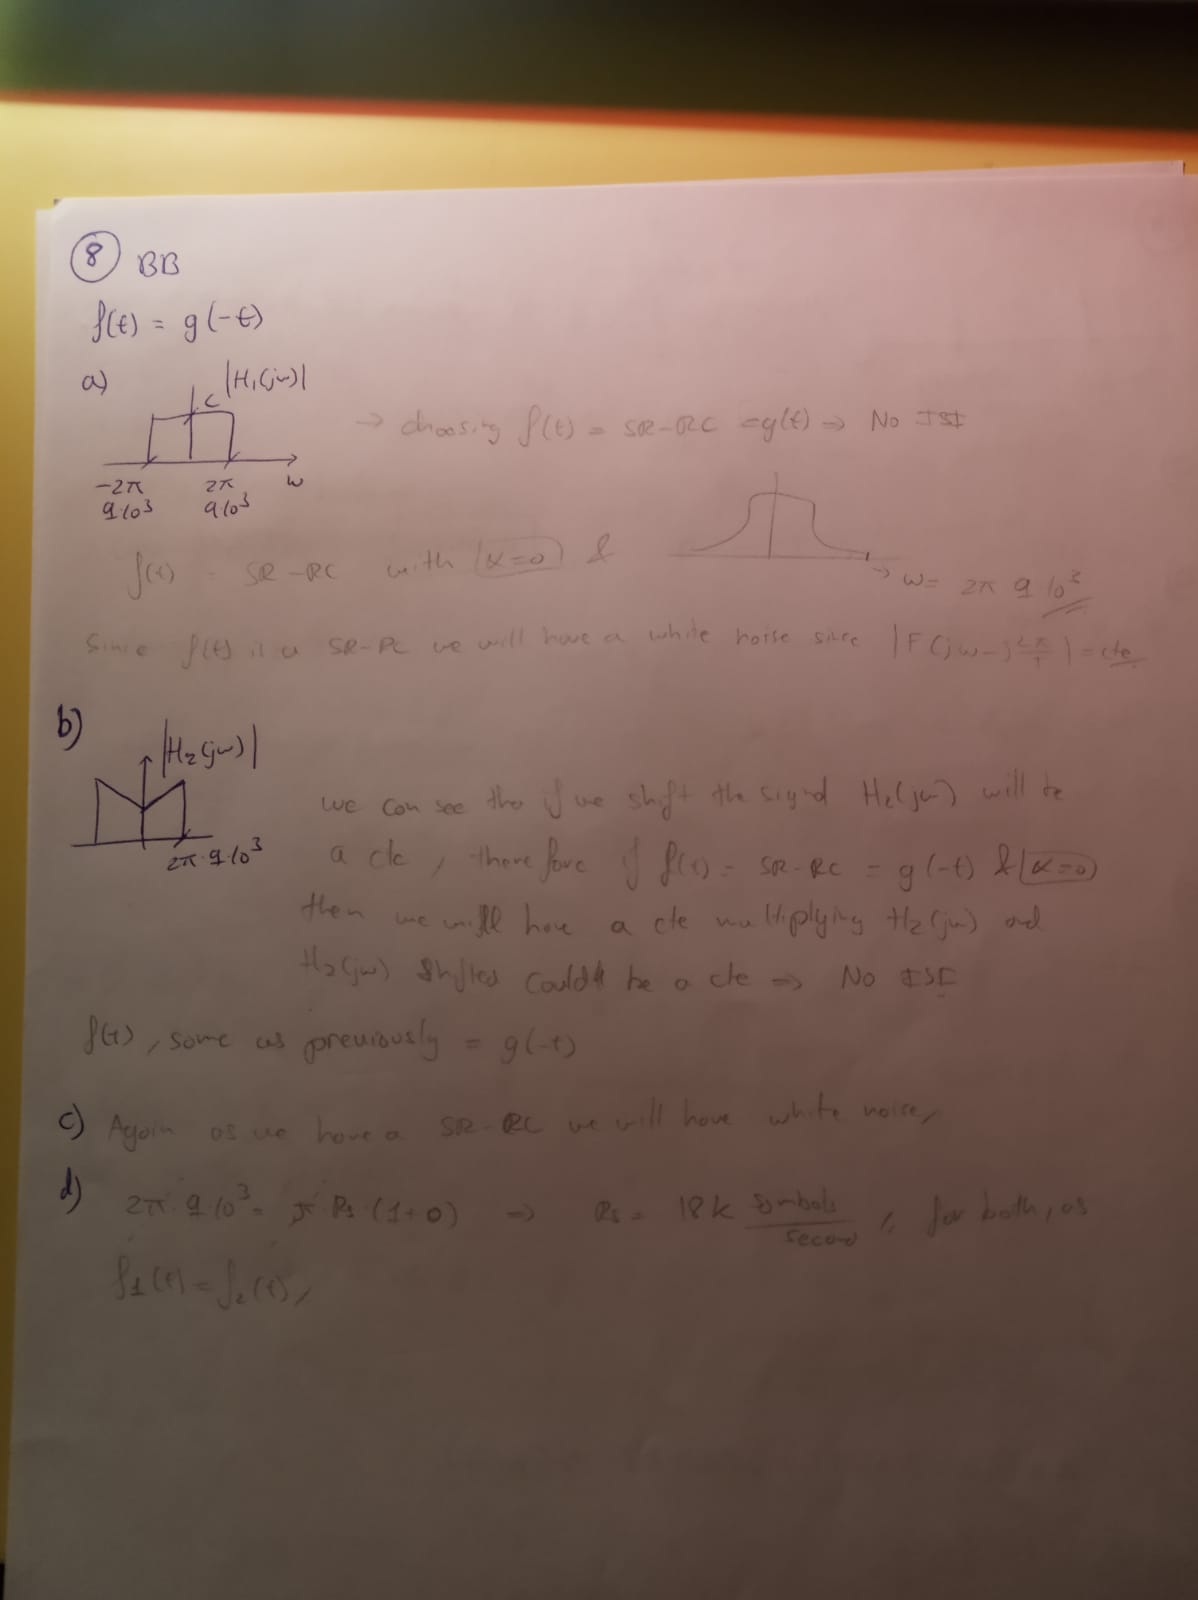 8 BB
f(t) = g(-t)
a) |H₁(jω)|
C
-2π 2π ω
9·10³ 9·10³
→ choosing f(t) = SR-RC = g(t) ⇒ No ISI
f(t) = SR-RC with α=0 &
→ ω= 2π 9 10³
Since f(t) is a SR-RC we will have a white noise since |F(jω-j2π/T)|=cte
b) |H₂(jω)|
2π·9·10³
we can see tha if we shift the signal H₂(jω) will be
a cte, therefore if f(t) = SR-RC = g(-t) & α=0
then we will have a cte multiplying H₂(jω) and
H₂(jω) shifted be a cte ⇒ No ISI
f(t), same as previously = g(-t)
c) Again as we have a SR-RC we will have white noise
d) 2π·9·10³ = π·Rs·(1+0) ⇒ Rs = 18k symbols/second, for both, as
f₁(t) = f₂(t)